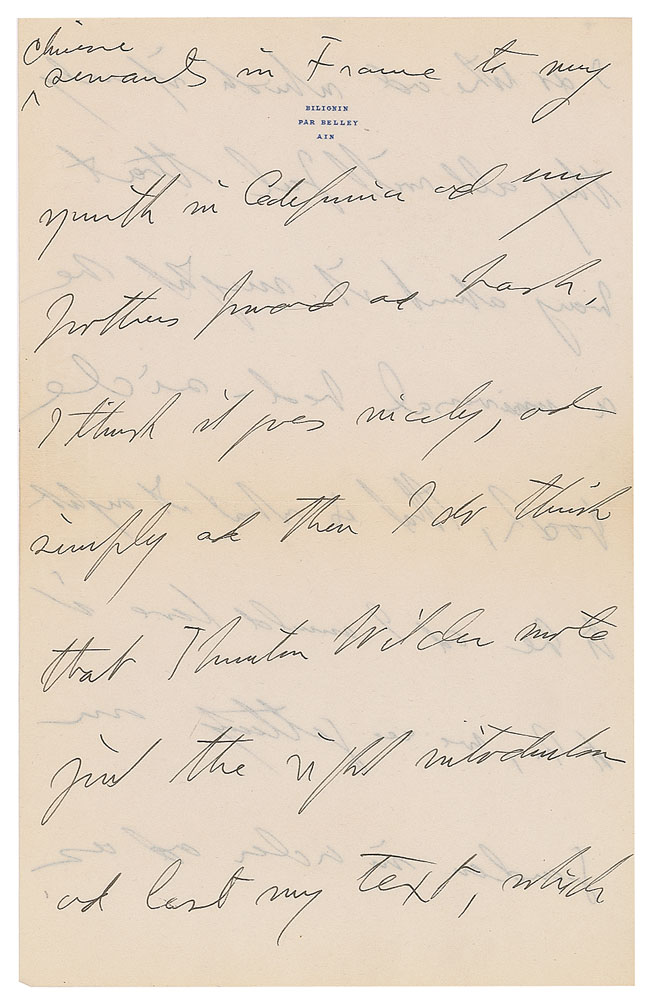 chinese
servants in France to my
BILIGNIN
PAR BELLEY
AIN
youth in California and my
brothers forward and back,
I think it goes nicely, and
simply and then I do think
that Thornton Wilder wrote
just the right introduction
and last my text, which